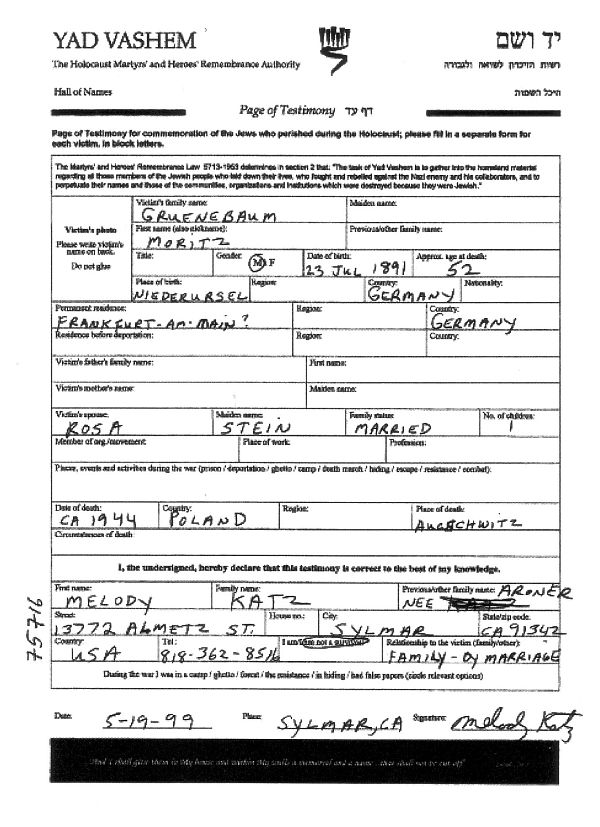 YAD VASHEM
יד ושם
The Holocaust Martyrs' and Heroes' Remembrance Authority
רשות הזיכרון לשואה ולגבורה
Hall of Names
היכל השמות
Page of Testimony דף עד
Page of Testimony for commemoration of the Jews who perished during the Holocaust; please fill in a separate form for
each victim, in block letters.
The Martyrs' and Heroes' Remembrance Law 5713-1953 determines in section 2 that: "The task of Yad Vashem is to gather into the homeland material
regarding all those members of the Jewish people who laid down their lives, who fought and rebelled against the Nazi enemy and his collaborators, and to
perpetuate their names and those of the communities, organizations and institutions which were destroyed because they were Jewish."
Victim's photo
Please write victim's
name on back.
Do not glue
Victim's family name: Maiden name:
GRUENEBAUM
First name (also nickname): Previous/other family name:
MORITZ
Title: Gender: M F Date of birth: Approx. age at death:
23 JUL 1891 52
Place of birth: Region: Country: Nationality:
NIEDERURSEL GERMANY
Permanent residence: Region: Country:
FRANKFURT-AM-MAIN? GERMANY
Residence before deportation: Region: Country:
Victim's father's family name: First name:
Victim's mother's name: Maiden name:
Victim's spouse: Maiden name: Family status: No. of children:
ROSA STEIN MARRIED 1
Member of org./movement: Place of work: Profession:
Places, events and activities during the war (prison / deportation / ghetto / camp / death march / hiding / escape / resistance / combat):
Date of death: Country: Region: Place of death:
CA 1944 POLAND AUGSCHWITZ
Circumstances of death:
I, the undersigned, hereby declare that this testimony is correct to the best of my knowledge.
First name: Family name: Previous/other family name: ARONER
MELODY KATZ NEE
Street: House no.: City: State/zip code.
13772 ALMETZ ST. SYLMAR CA 91342
Country: Tel: I am/I am not a survivor Relationship to the victim (family/other):
USA 818-362-8516 FAMILY - BY MARRIAGE
During the war I was in a camp / ghetto / forest / the resistance / in hiding / had false papers (circle relevant options)
Date: 5-19-99 Place: SYLMAR, CA Signature: Melody Katz
"And I shall give them in My house and within My walls a memorial and a name...that shall not be cut off"
75716